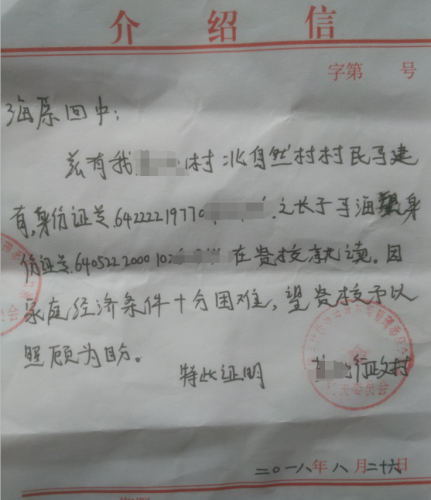 介绍信
字第 号
海原回中：
兹有我 村北自然村村民马建
有,身份证号6422221977 之长子马海 身
份证号6405222000 在贵校就读。因
家庭经济条件十分困难，望贵校予以
照顾为盼。
特此证明 行政村
二〇一八年八月二十六